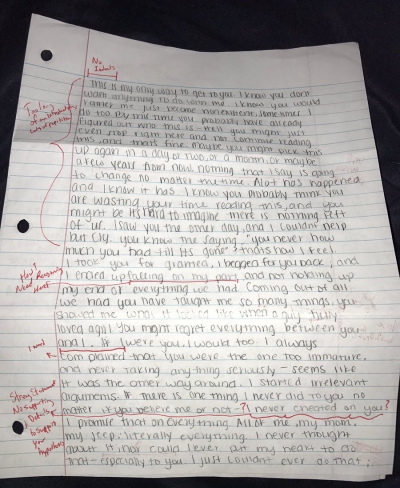 No
Indent
This is my only way to get to you. I know you don't
want anything to do with me. I know you would
rather me just become nonexistent. Sometimes I
do too. By this time you probably have already
figured out who this is - hell you might just
even stop right here and not continue reading
this, and that's fine. Maybe you might pick this
up again in a day or two, or a month, or maybe
a few years from now, nothing that I say is going
to change no matter the time. Alot has happened
and I know it has. I know you probably think you
are wasting your time reading this, and you
might be. It's hard to imagine there is nothing left
of "us". I saw you the other day, and I couldn't help
but cry. You know the saying, "you never how
much you had till it's gone"? that's how I feel.
I took you for granted, I begged for you back, and
I ended up falling on my part and not holding up
my end of everything we had. Coming out of all
we had you have taught me so many things, you
showed me what it looked like when a guy fully
loved a girl. You might regret everything between you
and I. If I were you, I would too. I always
complained that you were the one too immature,
and never taking anything seriously - seems like
it was the other way around. I started irrelevant
arguments. If there is one thing I never did to you no
matter if you believe me or not -? I never cheated on you?
I promise that on everything. All of me, my mom,
my jeep. literally everything. I never thought
about it, nor could I ever att my heart to do
that - especially to you. I just couldn't ever do that;
Too long
of an Introduction
Lots of repetition
Hazy Reasoning
Need More
1 word
Strong Statement
No Supporting
Details
to Support
your
Hypothesis